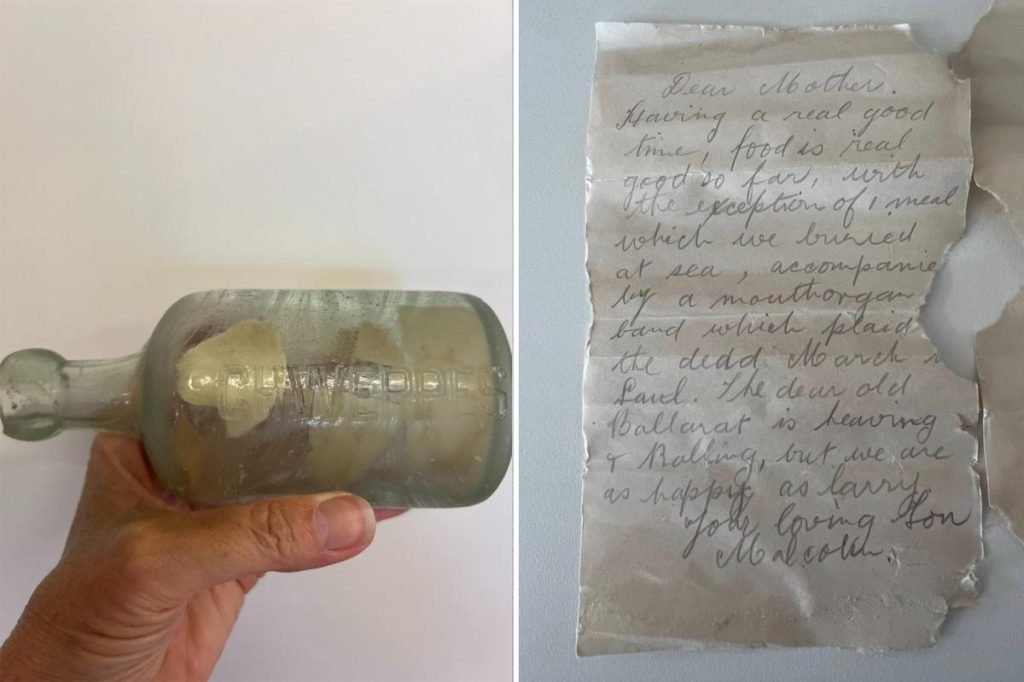 SCHWEPPES
Dear Mother.
Having a real good
time, food is real
good so far, with
the exception of 1 meal
which we buried
at sea, accompanie
by a mouthorgan
band which plaid
the dedd March i
Saul. The dear old
Ballarat is heaving
& Balling, but we are
as happy as larry
Your loving Son
Malcolm.